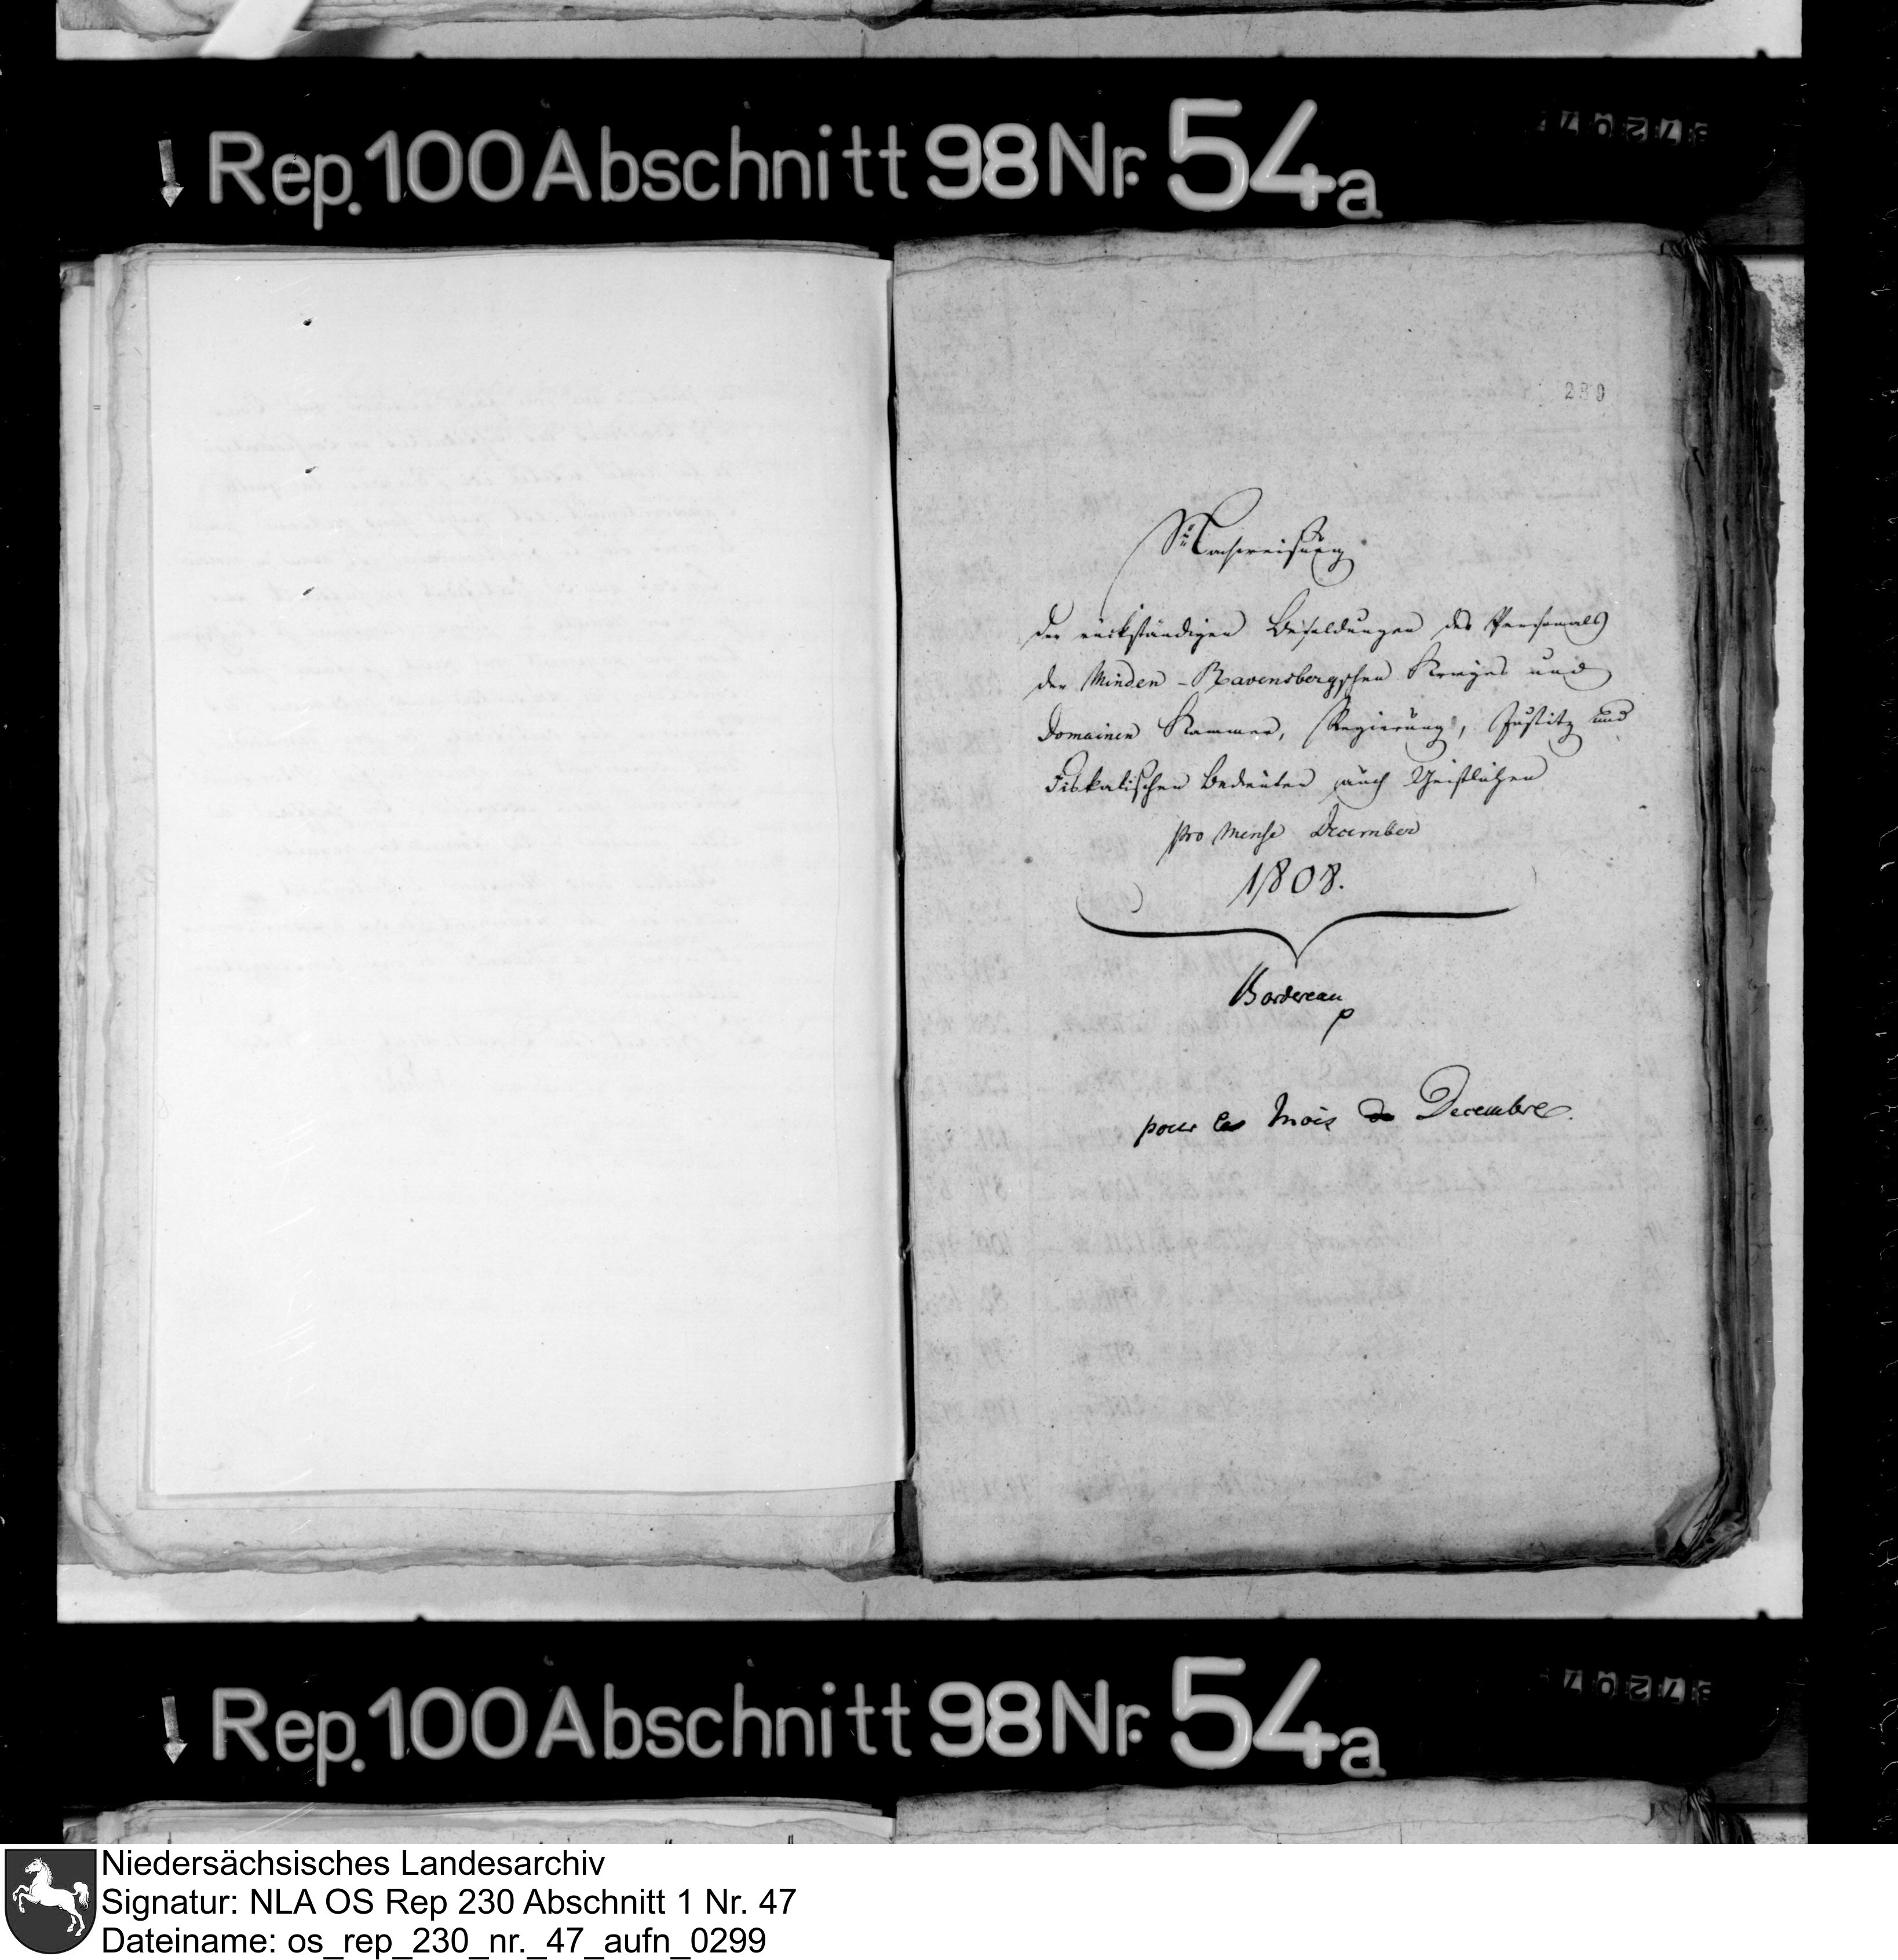 Rep. 100 Abschnitt 98 Nr. 54a
Nachweisung
der rückständigen Besoldungen des Personals
der Minden-Ravensbergschen Krieges und
Domainen Kammer, Regierung, Justitz und
Fiskalischen Bedienten auch Geistlichen
pro Mense December
1808.
Bordereau
pour le Mois de Decembre.
Rep. 100 Abschnitt 98 Nr. 54a
Niedersächsisches Landesarchiv
Signatur: NLA OS Rep 230 Abschnitt 1 Nr. 47
Dateiname: os_rep_230_nr._47_aufn_0299